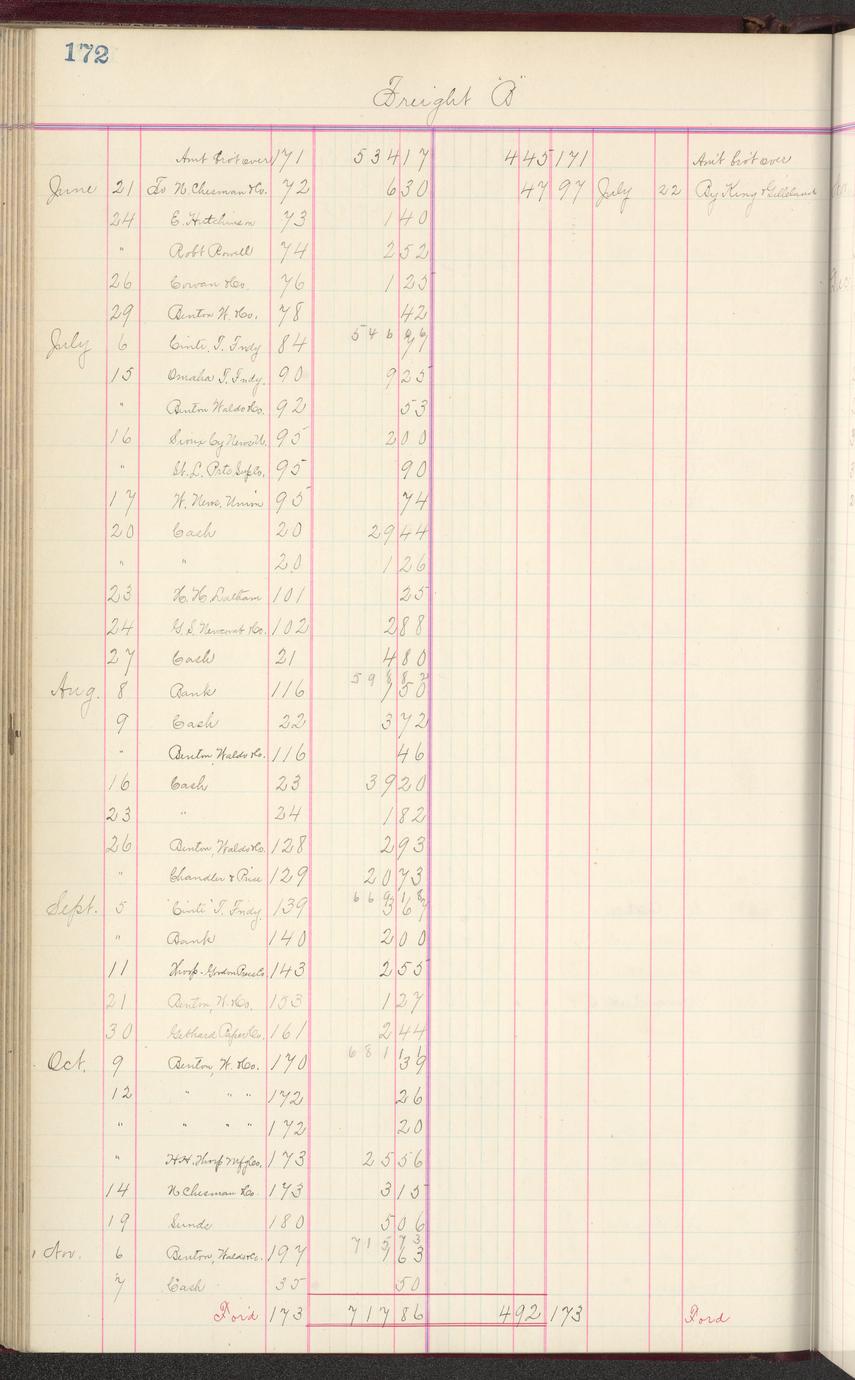 172
Freight "B"
Amt bro't over 171 534 17 445 171 Amt bro't over
June 21 To N. Chesman & Co. 72 6 30 47 97 July 22 By King & Gilleland
24 E. Hutchinson 73 1 40
" Robt Rowell 74 2 52
26 Cowan & Co. 76 1 25
29 Benton W. & Co. 78 42
546 26
July 6 Cinti. T. Fndy 84 77
15 Omaha T. Fndy. 90 9 25
" Benton Waldo & Co. 92 53
16 Sioux Cy News U. 95 2 00
" St. L. Prts Sup Co. 95 90
17 W. News. Union 95 74
20 Cash 20 29 44
" " 20 1 26
23 H. H. Latham 101 25
24 G. S. Newcomb & Co. 102 2 88
27 Cash 21 4 80
598 82
Aug. 8 Bank 116 1 50
9 Cash 22 3 72
" Benton, Waldo & Co. 116 46
16 Cash 23 39 20
23 " 24 1 82
26 Benton, Waldo & Co. 128 2 93
" Chandler & Price 129 20 73
669 18
Sept. 5 "Cinti" T. Fndy. 139 3 67
" Bank 140 2 00
11 Thorp-Gordon Press Co. 143 2 55
21 Benton, W. & Co. 153 1 27
30 Gethard Paper Co. 161 2 44
681 11
Oct. 9 Benton, W. & Co. 170 39
12 " " " 172 26
" " " " 172 20
" H.H. Thorp Mfg Co. 173 25 56
14 N Chesman & Co. 173 3 15
19 Sunds 180 5 06
715 73
Nov. 6 Benton, Waldo & Co. 197 1 63
7 Cash 35 50
For'd 173 717 86 492 173 Ford